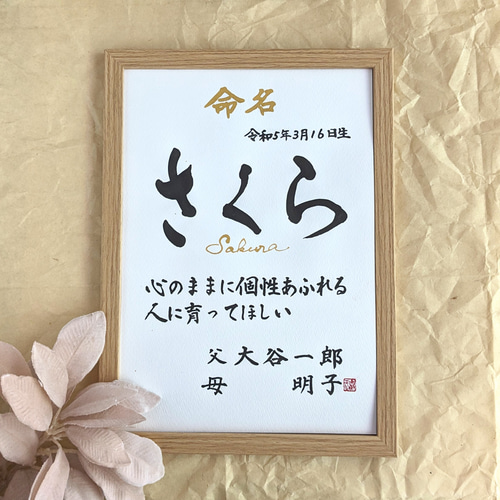 命名
令和5年3月16日生
さくら
Sakura
心のままに個性あふれる
人に育ってほしい
父 大谷一郎
母 明子